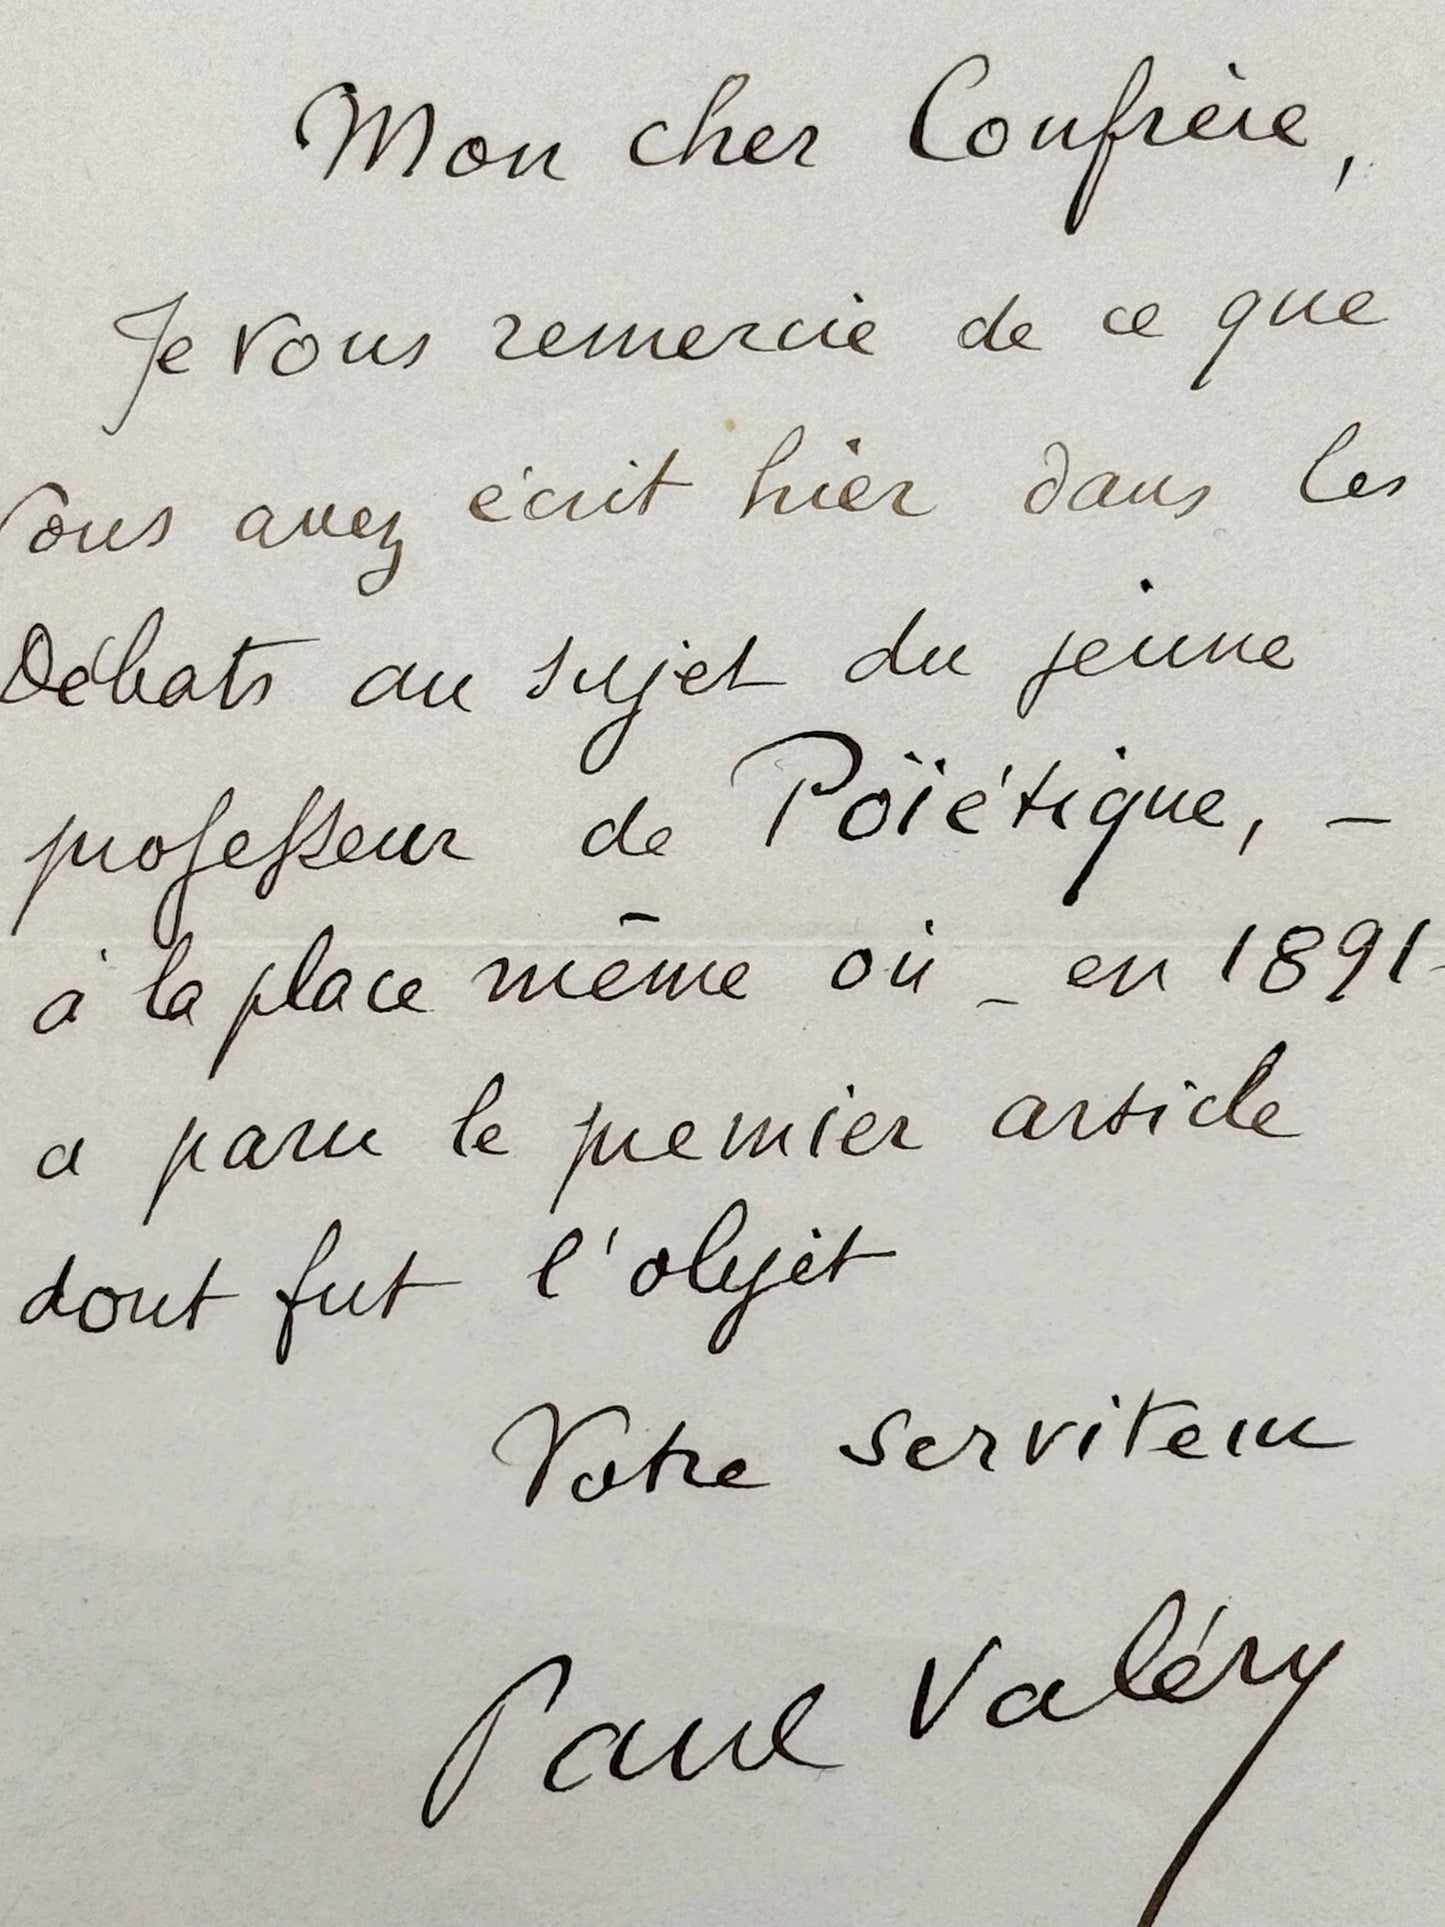 Mon cher Confrère,
Je vous remercie de ce que
Vous avez écrit hier dans les
Débats au sujet du jeune
professeur de Poïétique, –
à la place même où – en 1891 –
a paru le premier article
dont fut l'objet
Votre serviteur
Paul Valéry